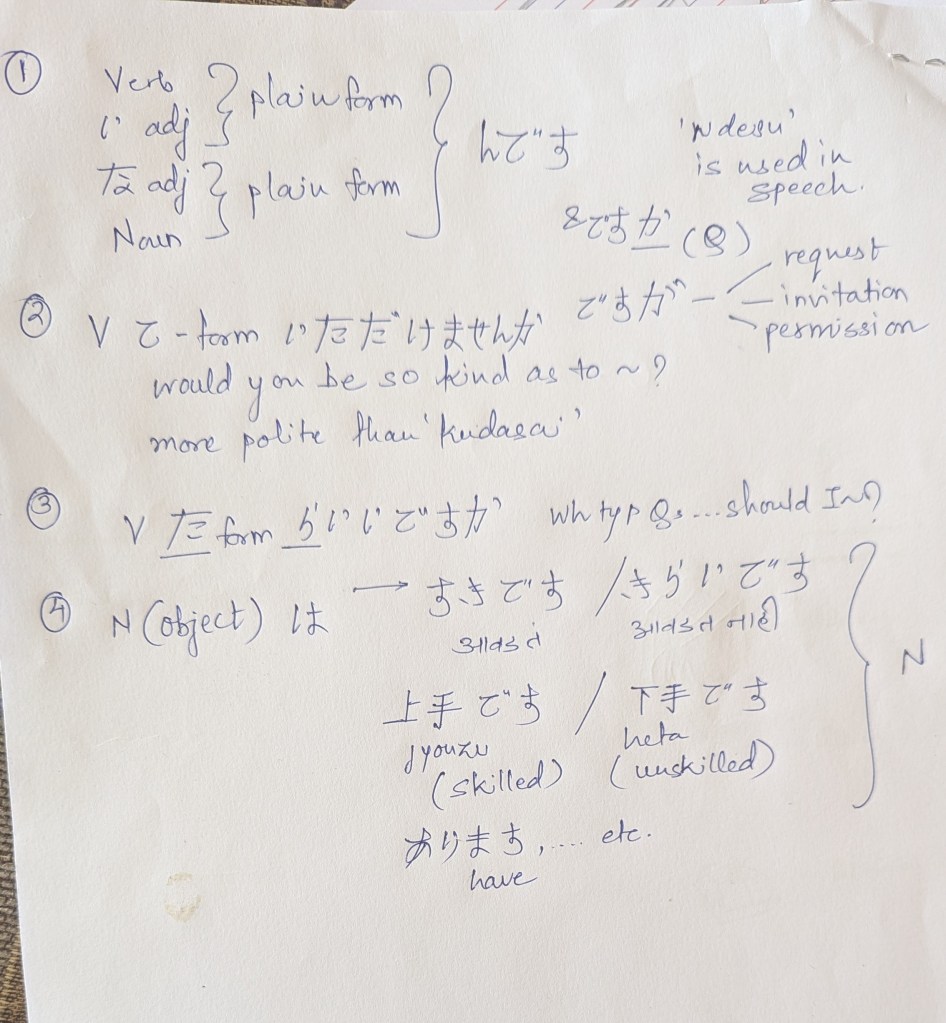 ① Verb } plain form } んです 'n desu'
い adj is used in
な adj } plain form speech.
Noun ですか (Q)
② V て-form いただけませんか ですが request
invitation
permission
would you be so kind as to ~ ?
more polite than 'kudasai'
③ V た form らいいですか wh typ Qs ... should I ~ ?
④ N (object) は → すきです / きらいです } N
आवडतं आवडत नाही
上手です / 下手です
jyouzu heta
(skilled) (unskilled)
あります, .... etc.
have